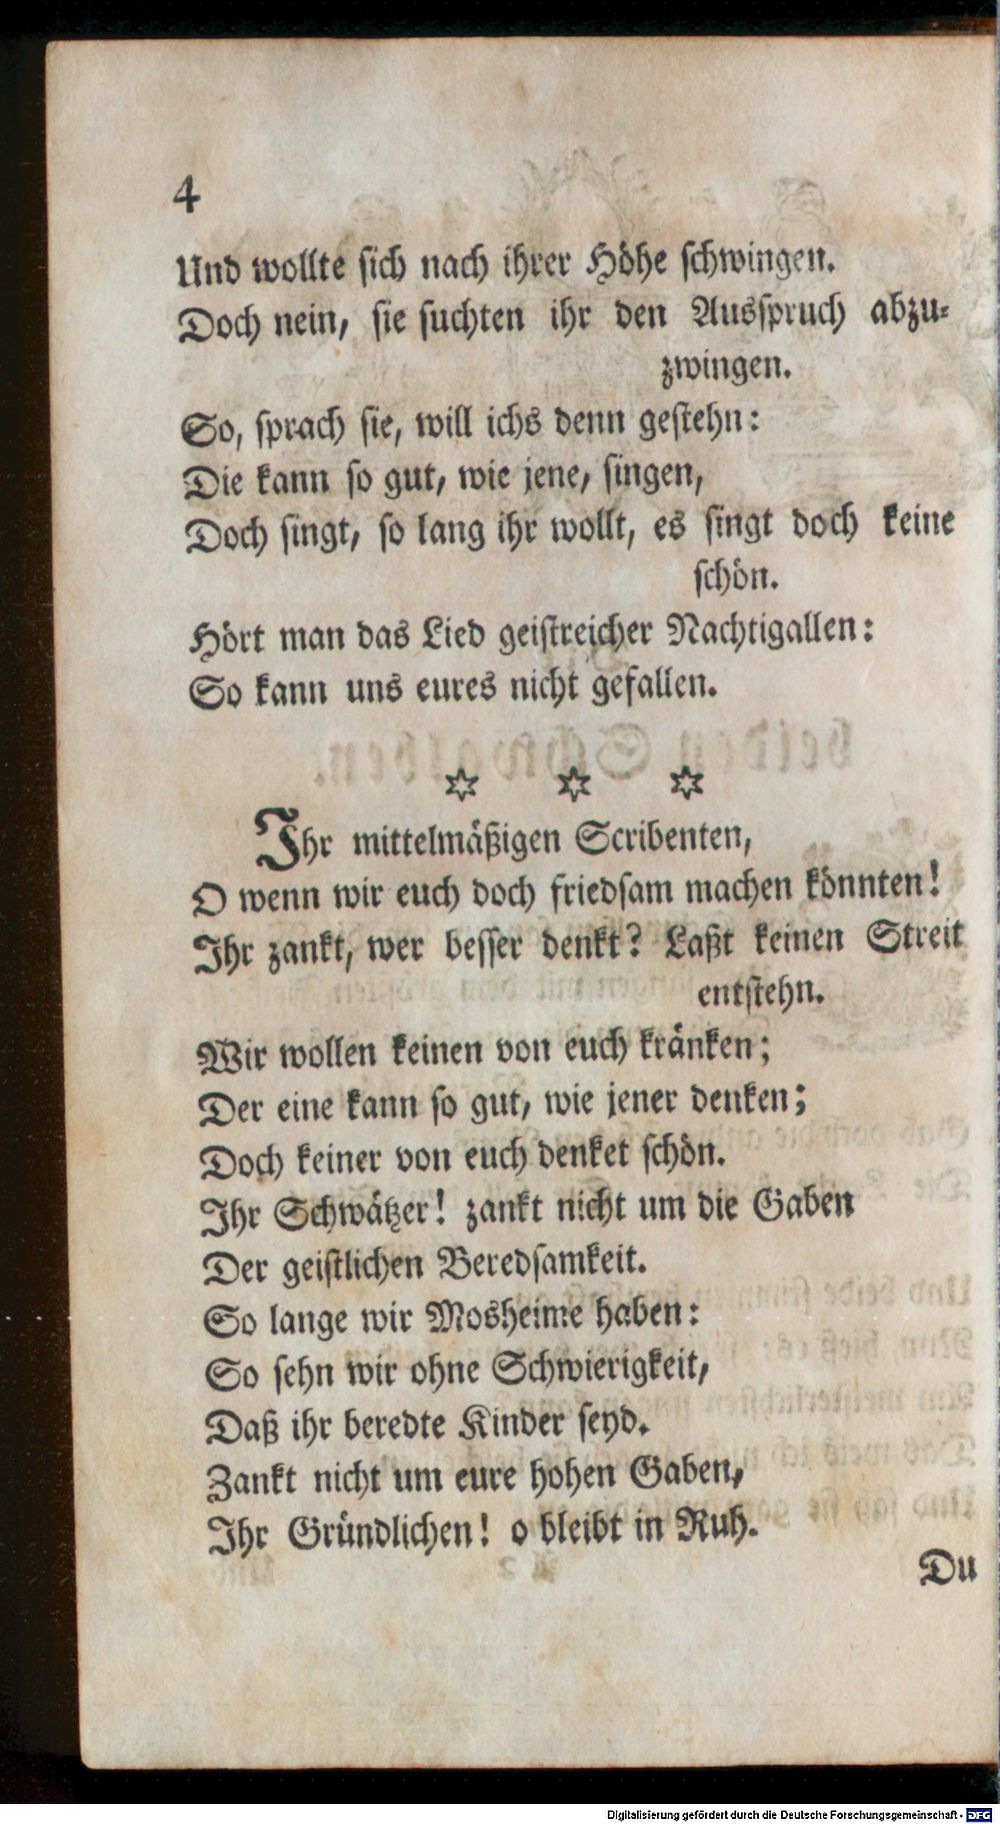 4
Und wollte sich nach ihrer Höhe schwingen.
Doch nein, sie suchten ihr den Ausspruch abzu-
zwingen.
So, sprach sie, will ichs denn gestehn:
Die kann so gut, wie jene, singen,
Doch singt, so lang ihr wollt, es singt doch keine
schön.
Hört man das Lied geistreicher Nachtigallen:
So kann uns eures nicht gefallen.
✡ ✡ ✡
Ihr mittelmäßigen Scribenten,
O wenn wir euch doch friedsam machen könnten!
Ihr zankt, wer besser denkt? Laßt keinen Streit
entstehn.
Wir wollen keinen von euch kränken;
Der eine kann so gut, wie jener denken;
Doch keiner von euch denket schön.
Ihr Schwätzer! zankt nicht um die Gaben
Der geistlichen Beredsamkeit.
So lange wir Mosheime haben:
So sehn wir ohne Schwierigkeit,
Daß ihr beredte Kinder seyd.
Zankt nicht um eure hohen Gaben,
Ihr Gründlichen! o bleibt in Ruh.
Du
Digitalisierung gefördert durch die Deutsche Forschungsgemeinschaft - DFG